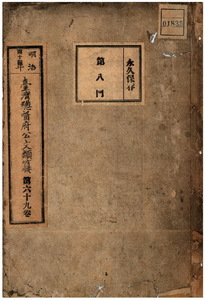 01832
永久保存
第八門
明治
四十四年
臺灣總督府公文類纂
第六十九卷